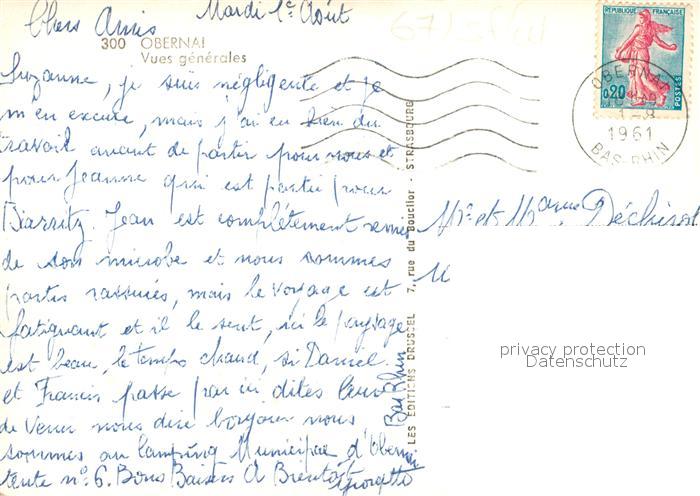 Mardi 1e Août
Chers Amis
300 OBERNAI
Vues générales
Suzanne, je suis négligente et je
m'en excuse, mais j'ai eu bien du
travail avant de partir pour nous et
pour Jeanne qui est partie pour
Biarritz. Jean est complétement remis
de son microbe et nous sommes
partis rassurés, mais le voyage est
fatiguant et il le sent, ici le paysage
est beau, le temps chaud, si Daniel
et Francis passe par ici dites leur
de venir nous dire bonjour nous
sommes au Camping Municipal d'Obernai
Bas Rhin
tente n° 6. Bons Baisers A Bientôt
LES EDITIONS DRUSSEL 7, rue du Bouclier - STRASBOURG
REPUBLIQUE FRANÇAISE
0,20
POSTES
OBERNAI
1-8
1961
BAS-RHIN
Mr et Mame Déchirot
M
privacy protection
Datenschutz